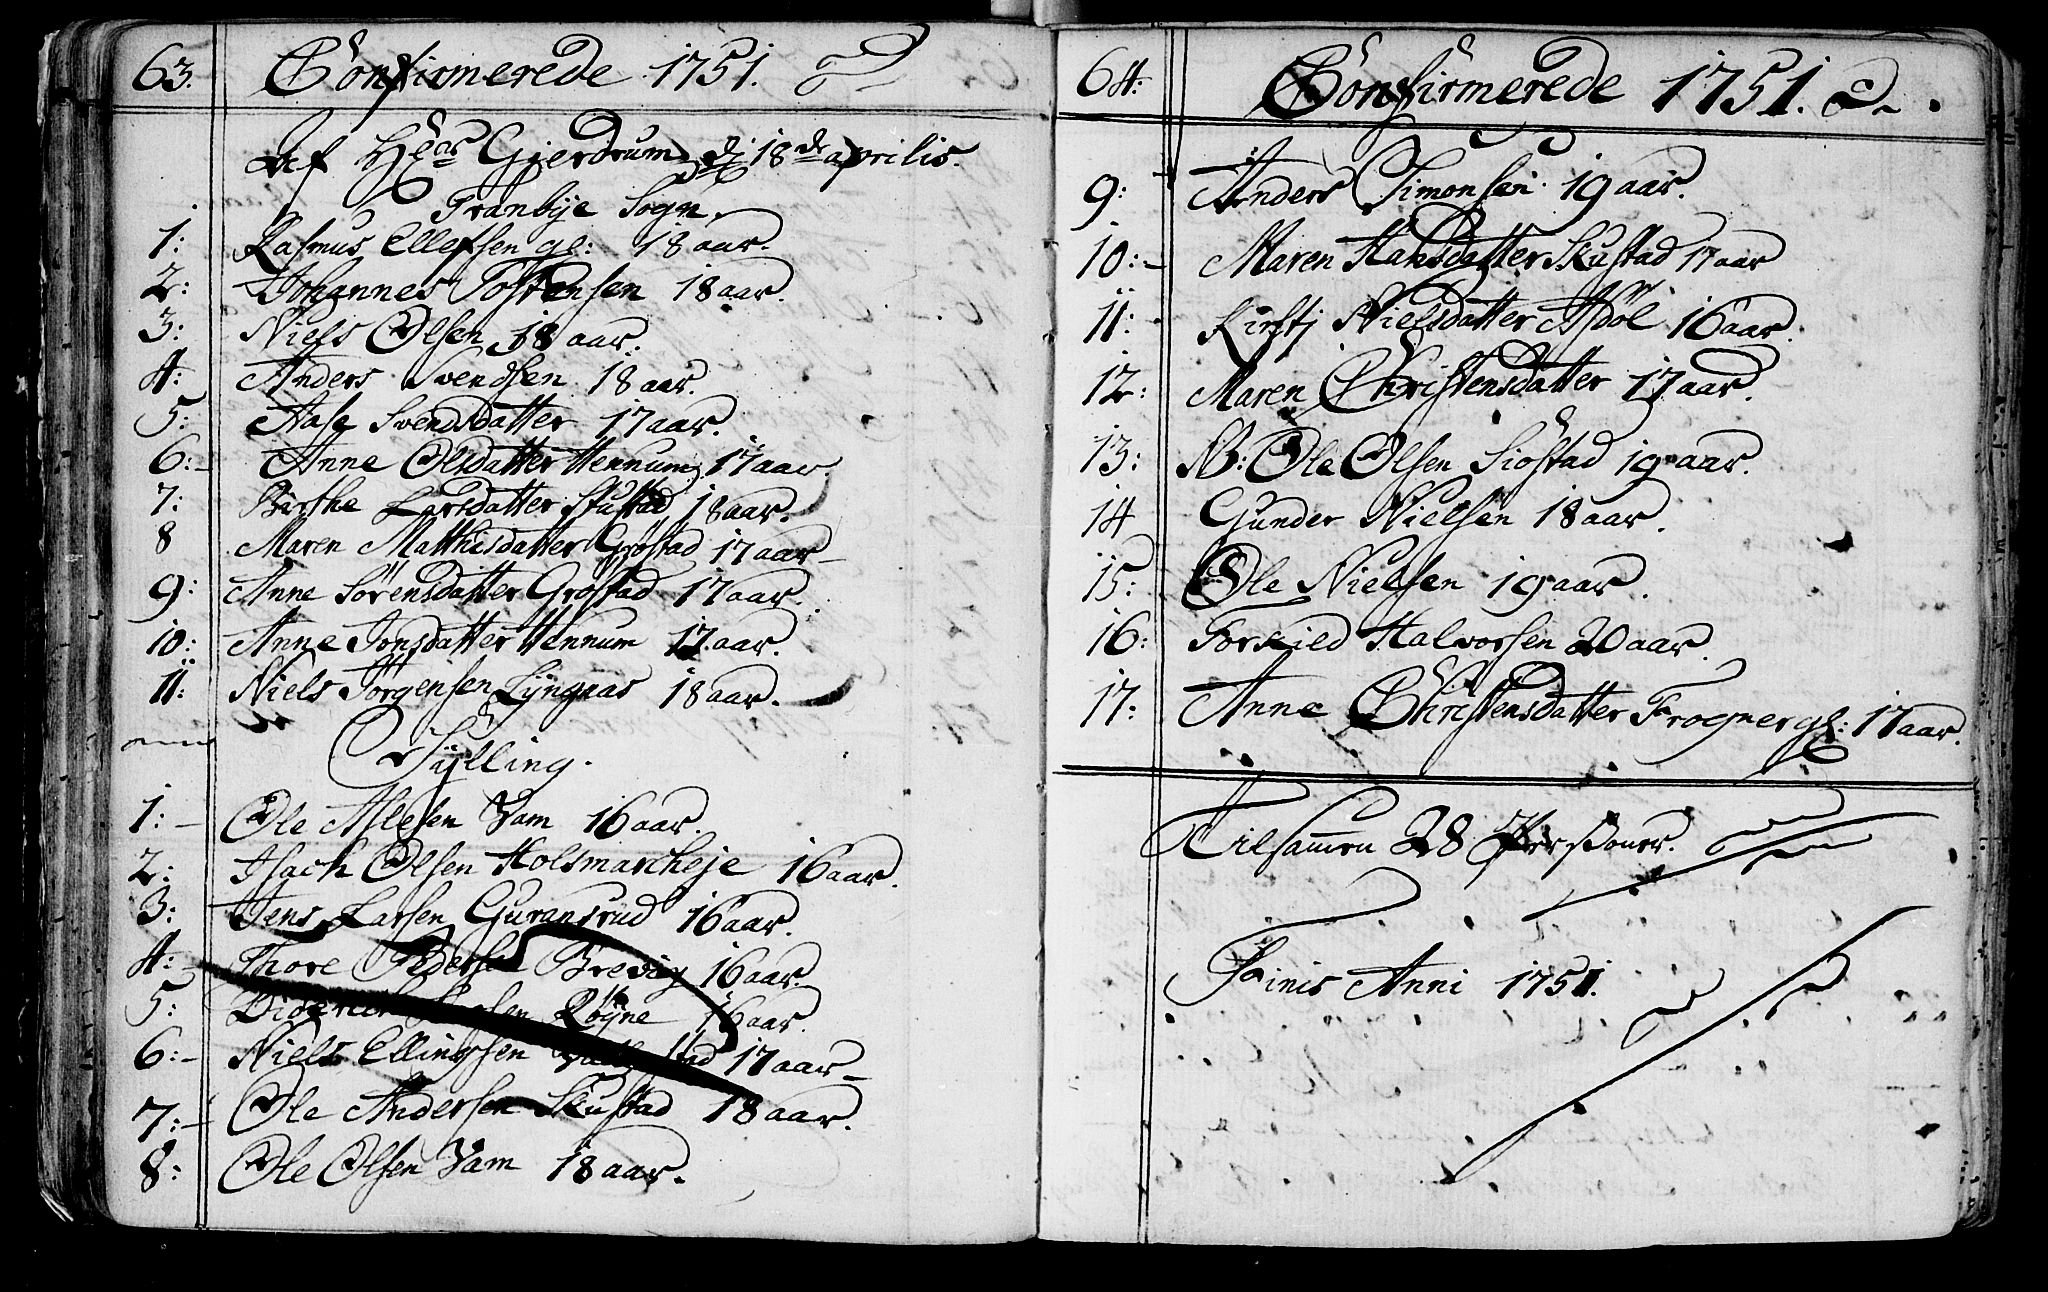 63.
Confirmerede 1751.
Af Hr Gjerdrum d: 18de aprilis.
Tranbye Sogn.
1: Rasmus Ellefsen gl: 18 aar.
2: Johannes Tostensen 18 aar.
3: Niels Olsen 18 aar.
4: Anders Svendsen 18 aar.
5: Aase Svendsdatter 17 aar.
6:- Anne Olsdatter Hennum 17 aar.
7: Birthe Larsdatter Skustad 18 aar.
8 Maren Matthisdatter Grøstad 17 aar-
9: Anne Sørensdatter Grøstad 17 aar.
10: Anne Jonsdatter Hennum 17 aar.
11: Niels Jørgensen Lÿngaas 18 aar.
Sÿlling.
1:- Ole Aslesen Vam 16 aar.
2: Isach Olsen Holsmarcheje 16 aar.
3: Jens Larsen Guransrud 16 aar.
4:- Thore Pedersen Brevig 16 aar.
5: Diderich Larsen Røÿne 16 aar.
6:- Niels Ellingsen 17 aar-
7:- Ole Andersen Skustad 18 aar.
8: Ole Olsen Vam 18 aar.
64:
Confirmerede 1751.
9: Anders Simonsen 19 aar.
10:- Maren Hansdatter Skustad 17 aar
11: Kirstj Nielsdatter Asdøl 16 aar.
12: Maren Christensdatter 17 aar.
13: NB: Ole Olsen Siøstad 19 aar.
14 Gunder Nielsen 18 aar.
15: Ole Nielsen 19 aar.
16: Torkied Halvorsen 20 aar.
17: Anne Christensdatter Frogner gl: 17 aar.
Tilsammen 28 Personer.
Finis Anni 1751.